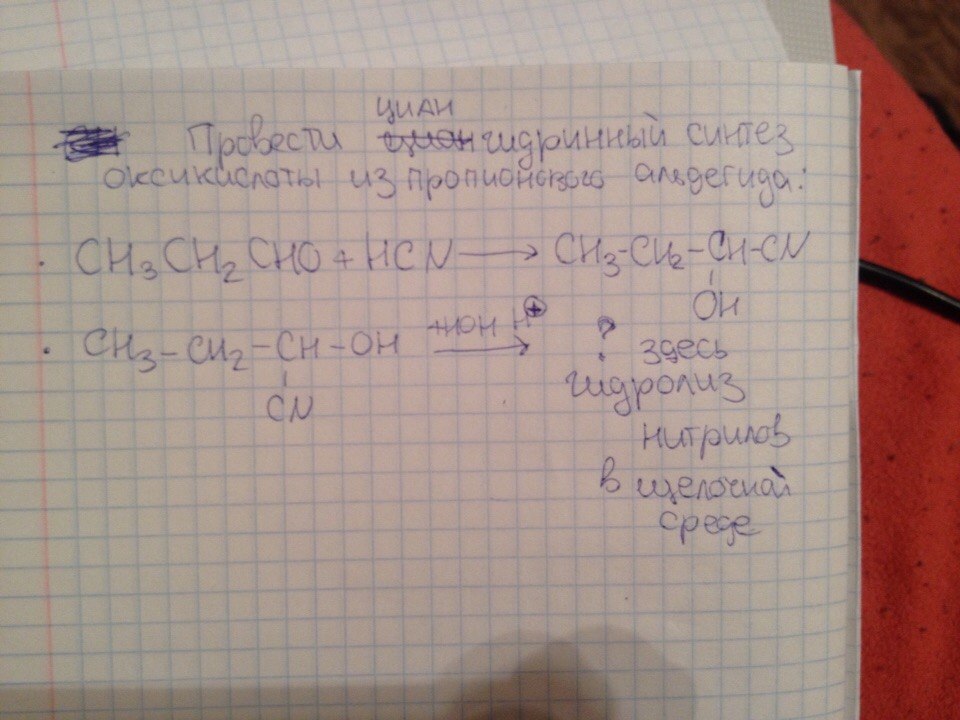 Провести циан гидринный синтез
оксикислоты из пропионового альдегида:
· CH3CH2CHO + HCN ⟶ CH3-CH2-CH-CN
OH
· CH3-CH2-CH-OH +HOH H⊕ ⟶ ?
CN
здесь
гидролиз
нитрилов
в щелочной
среде